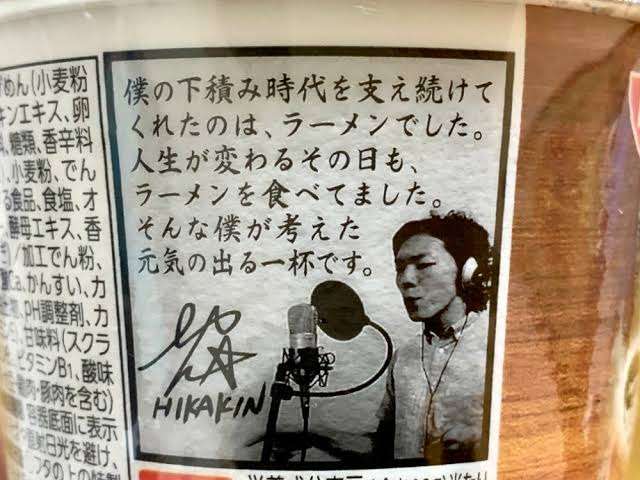 僕の下積み時代を支え続けて
くれたのは、ラーメンでした。
人生が変わるその日も、
ラーメンを食べてました。
そんな僕が考えた
元気の出る一杯です。
HIKAKIN
めん(小麦粉
キンエキス、卵
糖類、香辛料
、小麦粉、でん
る食品、食塩、オ
酵母エキス、香
/加工でん粉、
Ca、かんすい、カ
、pH調整剤、カ
甘味料(スクラ
ビタミンB1、酸味
・豚肉を含む)
底面に表示
日光を避け、
フタの上の特製